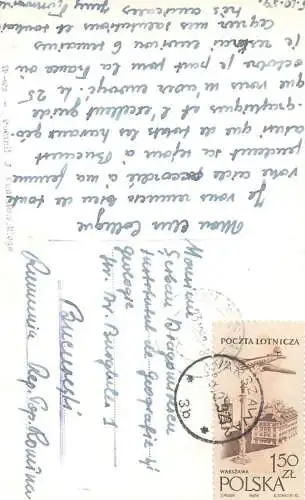 Mon cher Collègue
Je vous remercie bien de toute
votre aide accordée à ma femme
pendant sa séjour à Bucarest
ainsi que de tous les travaux géo-
graphiques et l'excellent guide
que vous m'avez envoyé. Le 25
octobre je pars pour la France où
je resterai environ 6 semaines
Agréez mes salutations et souhaits
très amicales
Monsieur
Şerban Dragomirescu
Institutul de Geografie şi
Geologie
Str. Dr. Burghele 1
Bucureşti
Rumunia Rep. Pop. Romînă
POCZTA LOTNICZA
WARSZAWA
1,50
ZŁ
POLSKA
3b